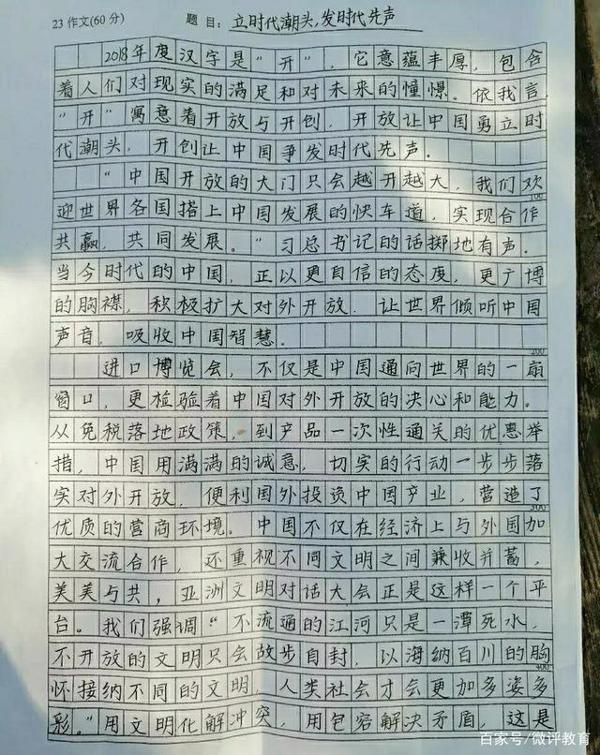 23 作文(60分) 题 目: 立时代潮头,发时代先声
2018年度汉字是"开",它意蕴丰厚,包含
着人们对现实的满足和对未来的憧憬。依我言,
"开"寓意着开放与开创,开放让中国勇立时
代潮头,开创让中国争发时代先声。
"中国开放的大门只会越开越大,我们欢
100
迎世界各国搭上中国发展的快车道,实现合作
共赢,共同发展。"习总书记的话掷地有声。
当今时代的中国,正以更自信的态度,更广博
的胸襟,积极扩大对外开放,让世界倾听中国
声音,吸收中国智慧。
200
进口博览会,不仅是中国通向世界的一扇
窗口,更检验着中国对外开放的决心和能力。
从免税落地政策,到产品一次性通关的优惠举
措,中国用满满的诚意,切实的行动一步步落
实对外开放,便利国外投资中国产业,营造了
300
优质的营商环境。中国不仅在经济上与外国加
大交流合作,还重视不同文明之间兼收并蓄,
美美与共,亚洲文明对话大会正是这样一个平
台。我们强调"不流通的江河只是一潭死水,
不开放的文明只会故步自封,以海纳百川的胸
400
怀接纳不同的文明,人类社会才会更加多姿多
彩。"用文明化解冲突,用包容解决矛盾,这是
百家号/微评教育